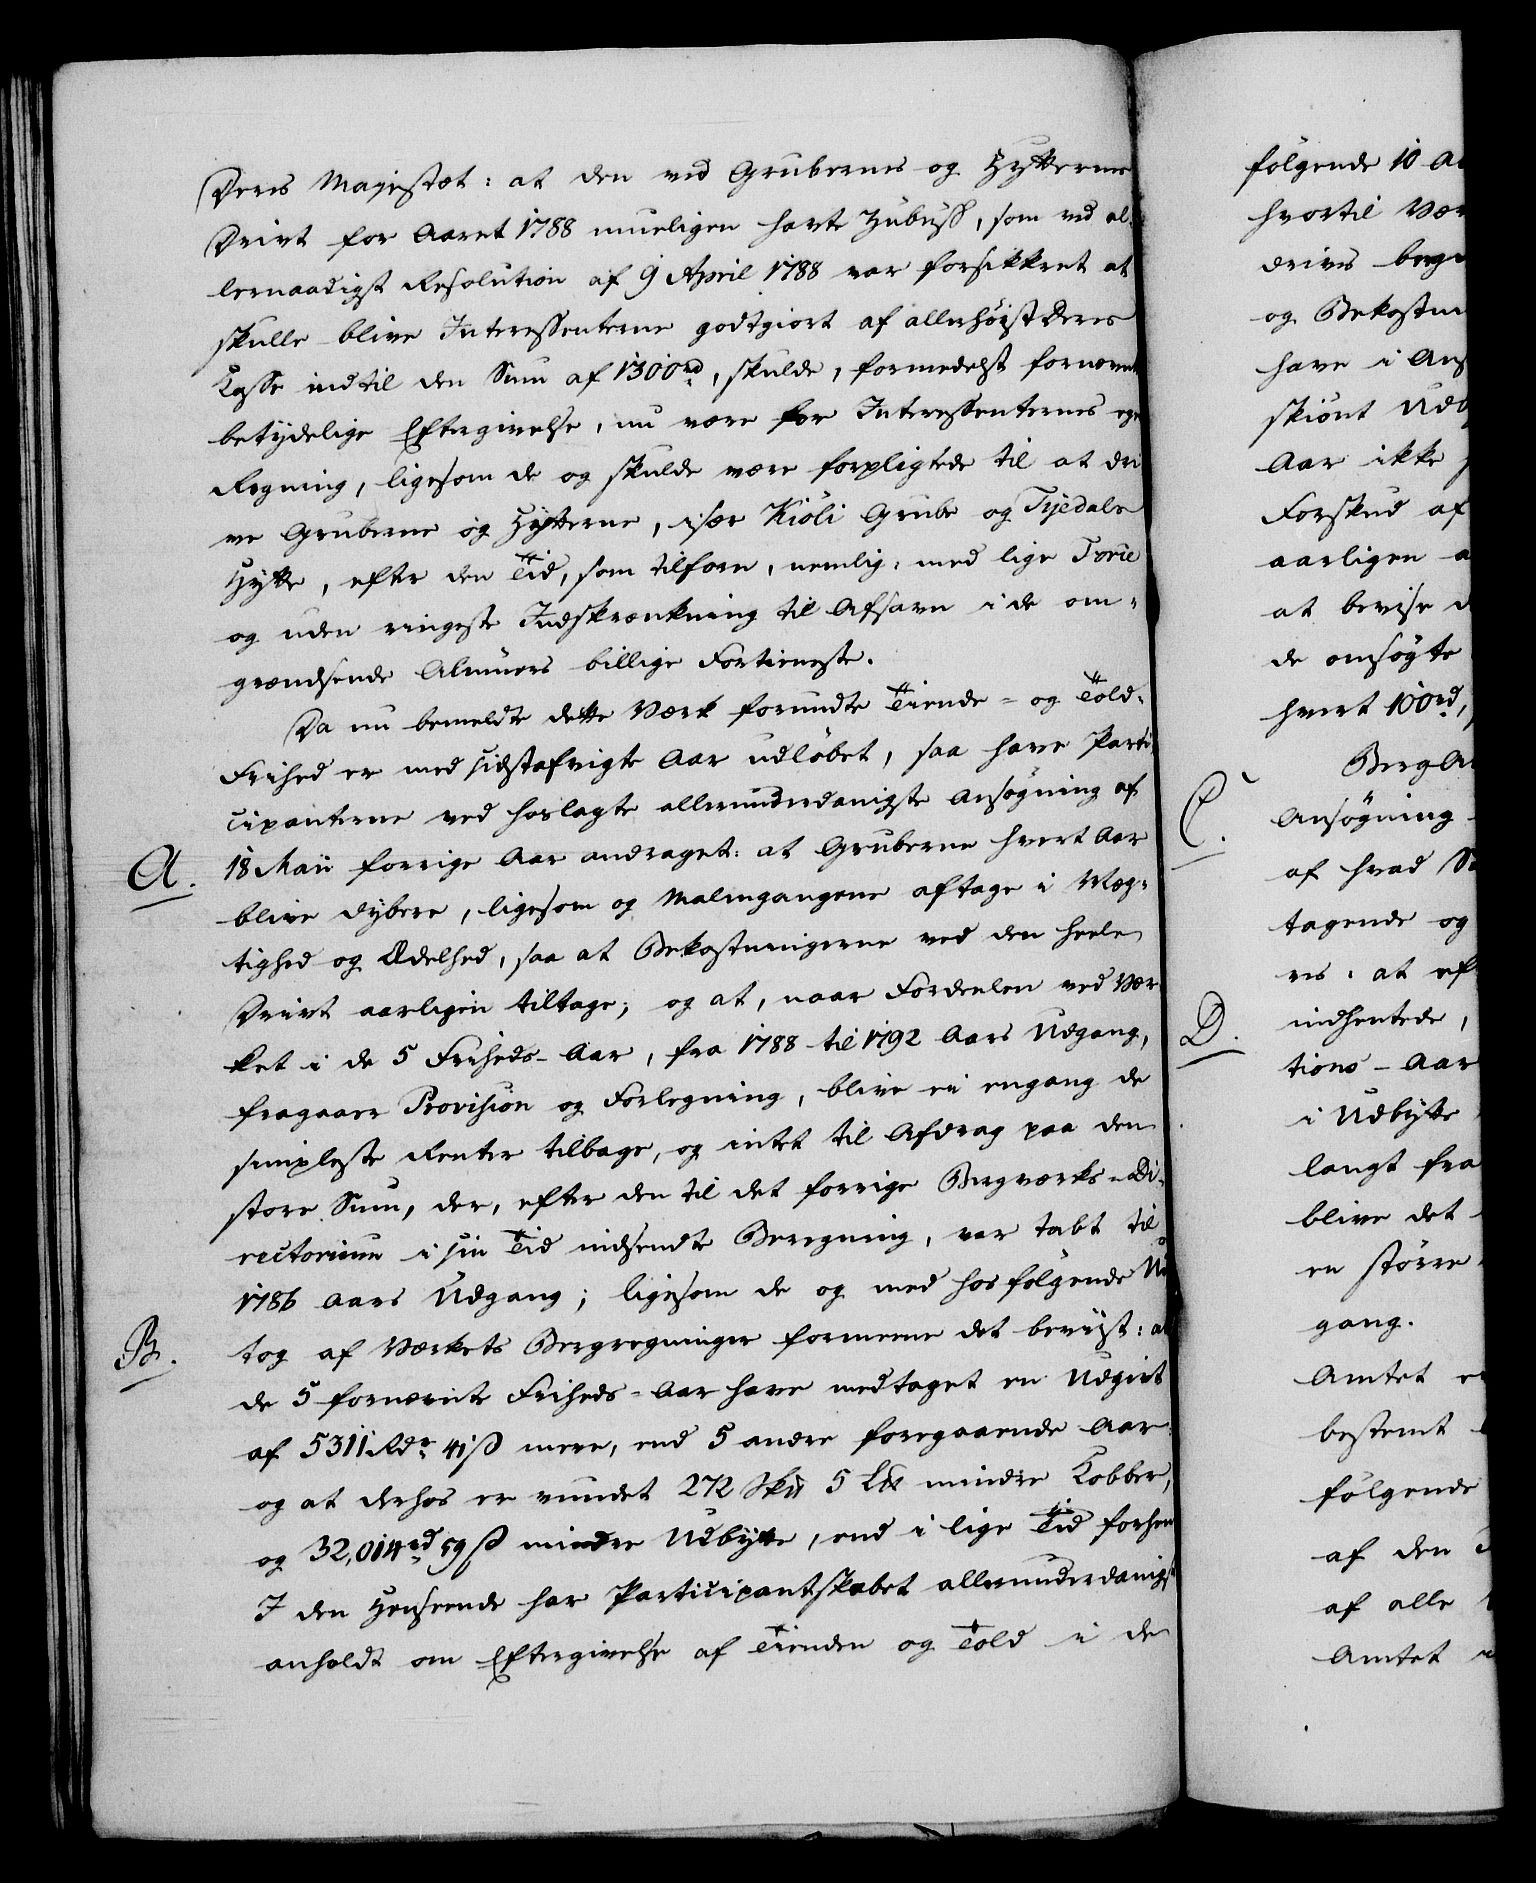 Deres Majestæt: at den ved Grubernes og Hytternes
Drivt for Aaret 1788 mueligen havte Zubuss, som ved al-
lernaadigst Resolution af 9 April 1788 var forsikkret at
skulle blive Interessenterne godtgiort af allerhøist Deres
Casse indtil den Sum af 1300rd, skulde, formedelst fornævnte
betydelige Eftergivelse, nu være for Interessenternes egen
Regning, ligesom de og skulde være forpligtede til at dri
ve Gruberne og Hytterne, især Kiöli Grube og Tyedals
Hytte, efter den Tid, som tilforn, nemlig: med lige Force
og uden ringeste Indskrænkning til Afsavn i de om-
grændsende Almuers billige Fortieneste.
Da nu bemeldte dette Værk forundte Tiende- og Told-
Frihed er med sidstafvigte Aar udløbet, saa have Parti-
cipanterne ved hoslagte allerunderdanigste Ansøgning af
A.
18 Maii forrige Aar andraget: at Gruberne hvert Aar
blive dybere, ligesom og Malmgangene aftage i Mæg-
tighed og Ædelhed, saa at Bekostningerne ved den heele
Drivt aarligen tiltage; og at, naar Fordeelen ved Vær
ket i de 5 Friheds-Aar, fra 1788 til 1792 Aars Udgang,
fragaaer Provision og Forlegning, blive ei engang de
simpleste Renter tilbage, og intet til Afdrag paa den
store Sum, der, efter den til det forrige Bergværks-Di-
rectorium i sin Tid indsendte Beregning, var tabt til
1786 Aars Udgang; ligesom de og med hosfølgende Ud
B.
tog af Værkets Bergregninger formeene det beviist: at
de 5 fornævnte Friheds-Aar have medtaget en Udgivt
af 5311 Rdr 41 ß mere, end 5 andre foregaaende Aar
og at derhos er vundet 272 Sk℔ 5 L℔ mindre Kobber,
og 32,014rd 59 ß mindre Udbytte, end i lige Tid forhen
I den Henseende har Participantskabet allerunderdanigst
anholdt om Eftergivelse af Tienden og Told i de
følgende 10 A
hvortil Vær
drives
og Bekostni
have i Ans
skiönt Udb
Aar ikke
Forskud af
aarligen
at bevise
de ansøgte
hvert 100rd,
Berg A
C.
Ansøgning
af hvad
tagende og
res: at ef
D.
indhentede,
tions-Aar
i Udbytte
langt fra
blive det
en større
gang.
Amtet
bestemt
følgende
af den
af alle
Amtet